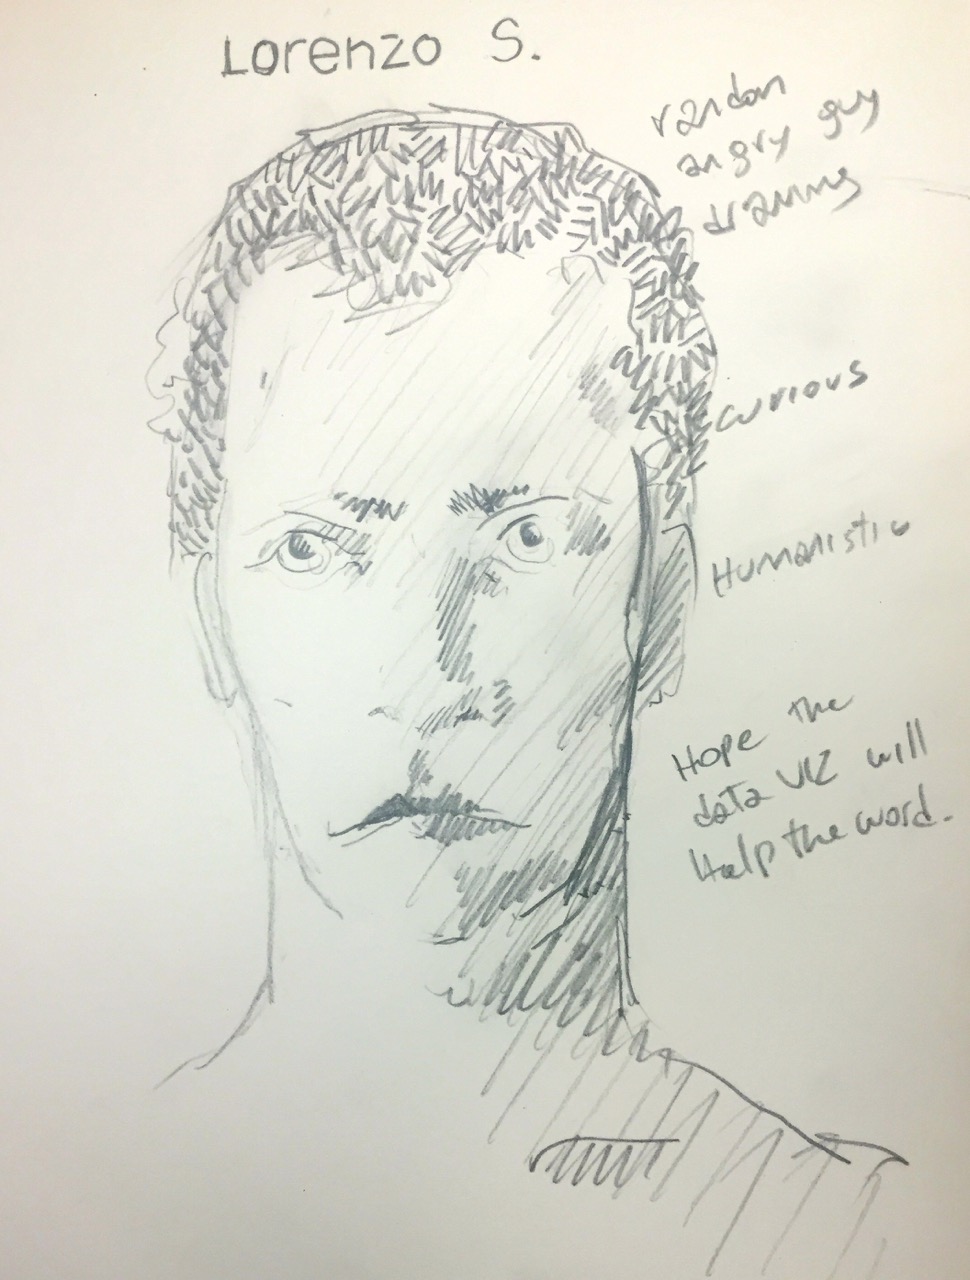 Lorenzo S.
random
angry guy
drawing
curious
Humanistic
Hope the
data viz will
Help the word.